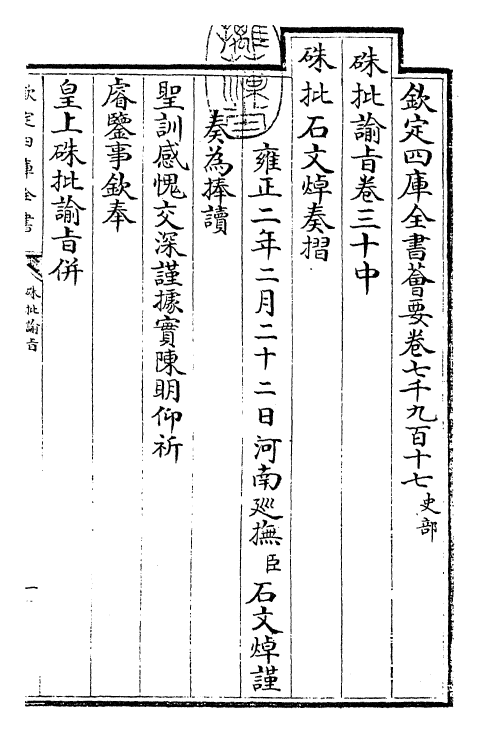 欽定四庫全書薈要卷七千九百十七史部
硃批諭旨卷三十中
硃批石文焯奏摺
雍正二年二月二十二日河南廵撫臣石文焯謹
奏為捧讀
聖訓感愧交深謹據實陳明仰祈
睿鑒事欽奉
皇上硃批諭旨併
欽定四庫全書
硃批諭旨
一